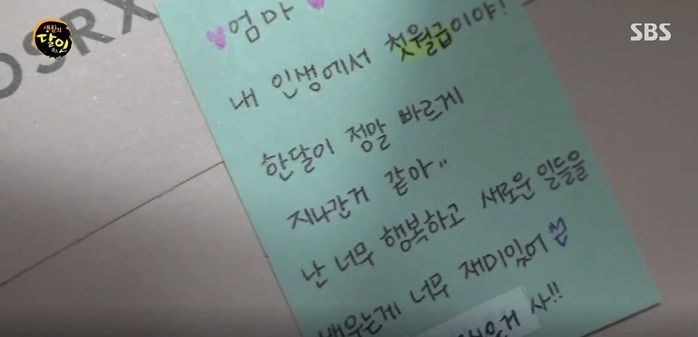 생활의
달인
SBS
OSRX
♥엄마♥
내 인생에서 첫월급이야!
한달이 정말 바르게
지나간거 같아..
난 너무 행복하고 새로운 일들을
배우는게 너무 재미있어
사!!